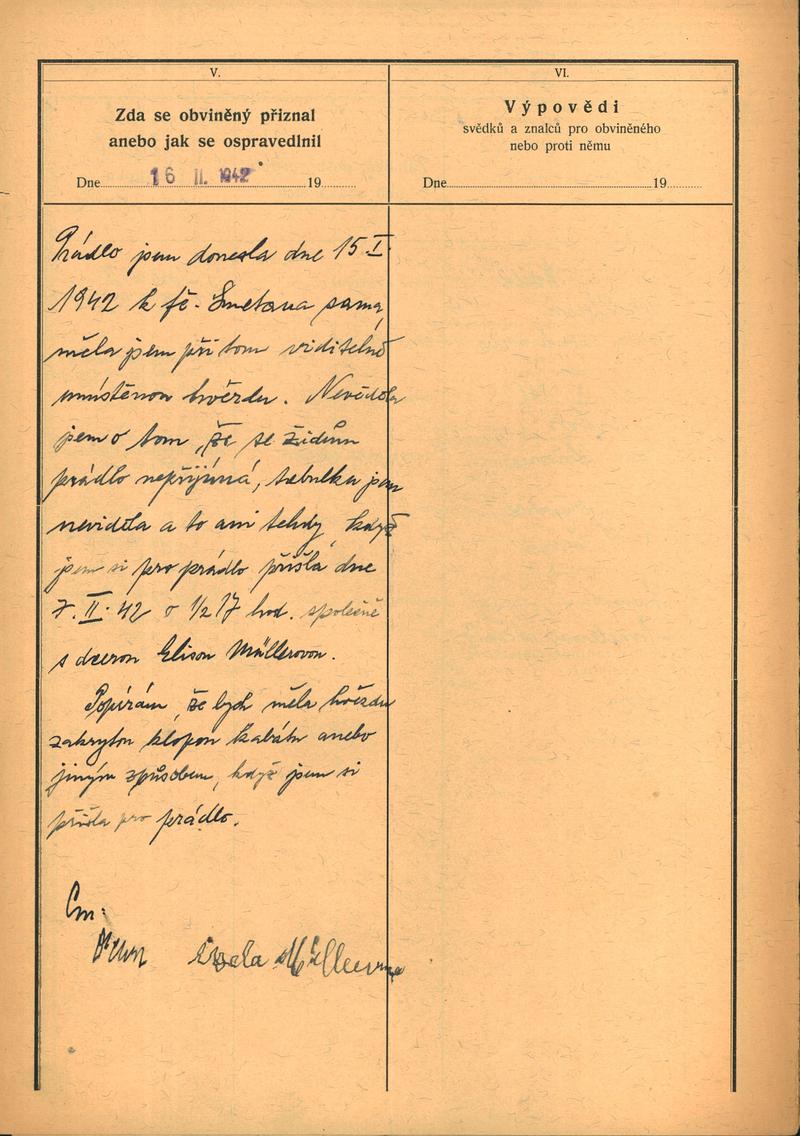 V.
Zda se obviněný přiznal
anebo jak se ospravedlnil
Dne 16 II. 1942 19
VI.
Výpovědi
svědků a znalců pro obviněného
nebo proti němu
Dne 19
Prádlo jsem donesla dne 15 I.
1942 k fě. Smetana sama,
měla jsem při tom viditelně
umístěnou hvězdu. Nevěděla
jsem o tom, že se židům
prádlo nepřijímá, tabulku jsem
neviděla a to ani tehdy, když
jsem si pro prádlo přišla dne
7. II. 42 o 1/2 17 hod. společně
s dcerou Elisou Müllerovou.
Popírám, že bych měla hvězdu
zakrytou klopou kabátu anebo
jiným způsobem, když jsem si
přišla pro prádlo.
Müllerová